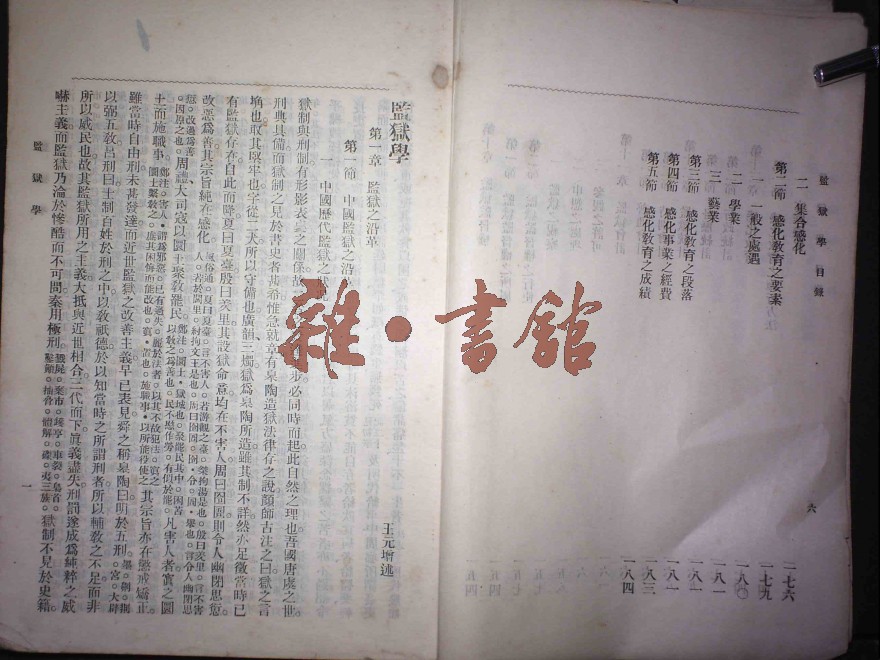 監獄學目錄
二 集合感化
第二節 感化教育之要素
一 一般之處遇
二 學業
三 藝業
第三節 感化教育之段落
第四節 感化事業之經費
第五節 感化教育之成績
六
一七六
一七九
一八〇
一八一
一八一
一八一
一八三
一八四
雜·書館
監獄學
王元增述
第一章 監獄之沿革
第一節 中國監獄之沿
一 中國歷代監獄之
獄制與刑制有形影表裏之關係故 步必同時而起此自然之理也吾國唐虞之世
刑典具備而獄制之見於書史者甚希惟急就章有皋陶造獄法律存之說顏師古注之曰獄之言
埆也取其堅牢也字從二犬所以守備也廣韻三獨獄爲皋陶所造雖其制不詳然亦足徵當時已
有監獄存在自此而降夏曰夏臺殷曰羑里其設獄命意均在不害人周曰囹圄則令人幽閉思愆
改惡爲善其宗旨純在感化
土而施職事 其宗旨亦在懲戒矯正
雖當時自由刑未甚發達而近世監獄之改善主義早已表見舜之稱皋陶曰明於五刑
以弼五敎呂刑曰士制百姓於刑之中以敎祇德於以知當時之所謂刑者所以輔敎之不足而非
所以威民也故其監獄所用之主義大抵與近世相合三代而下眞義盡失刑罰遂成爲純粹之威
嚇主義而監獄乃淪於慘酷而不可問秦用極刑 獄制不見於史籍
監獄學
一